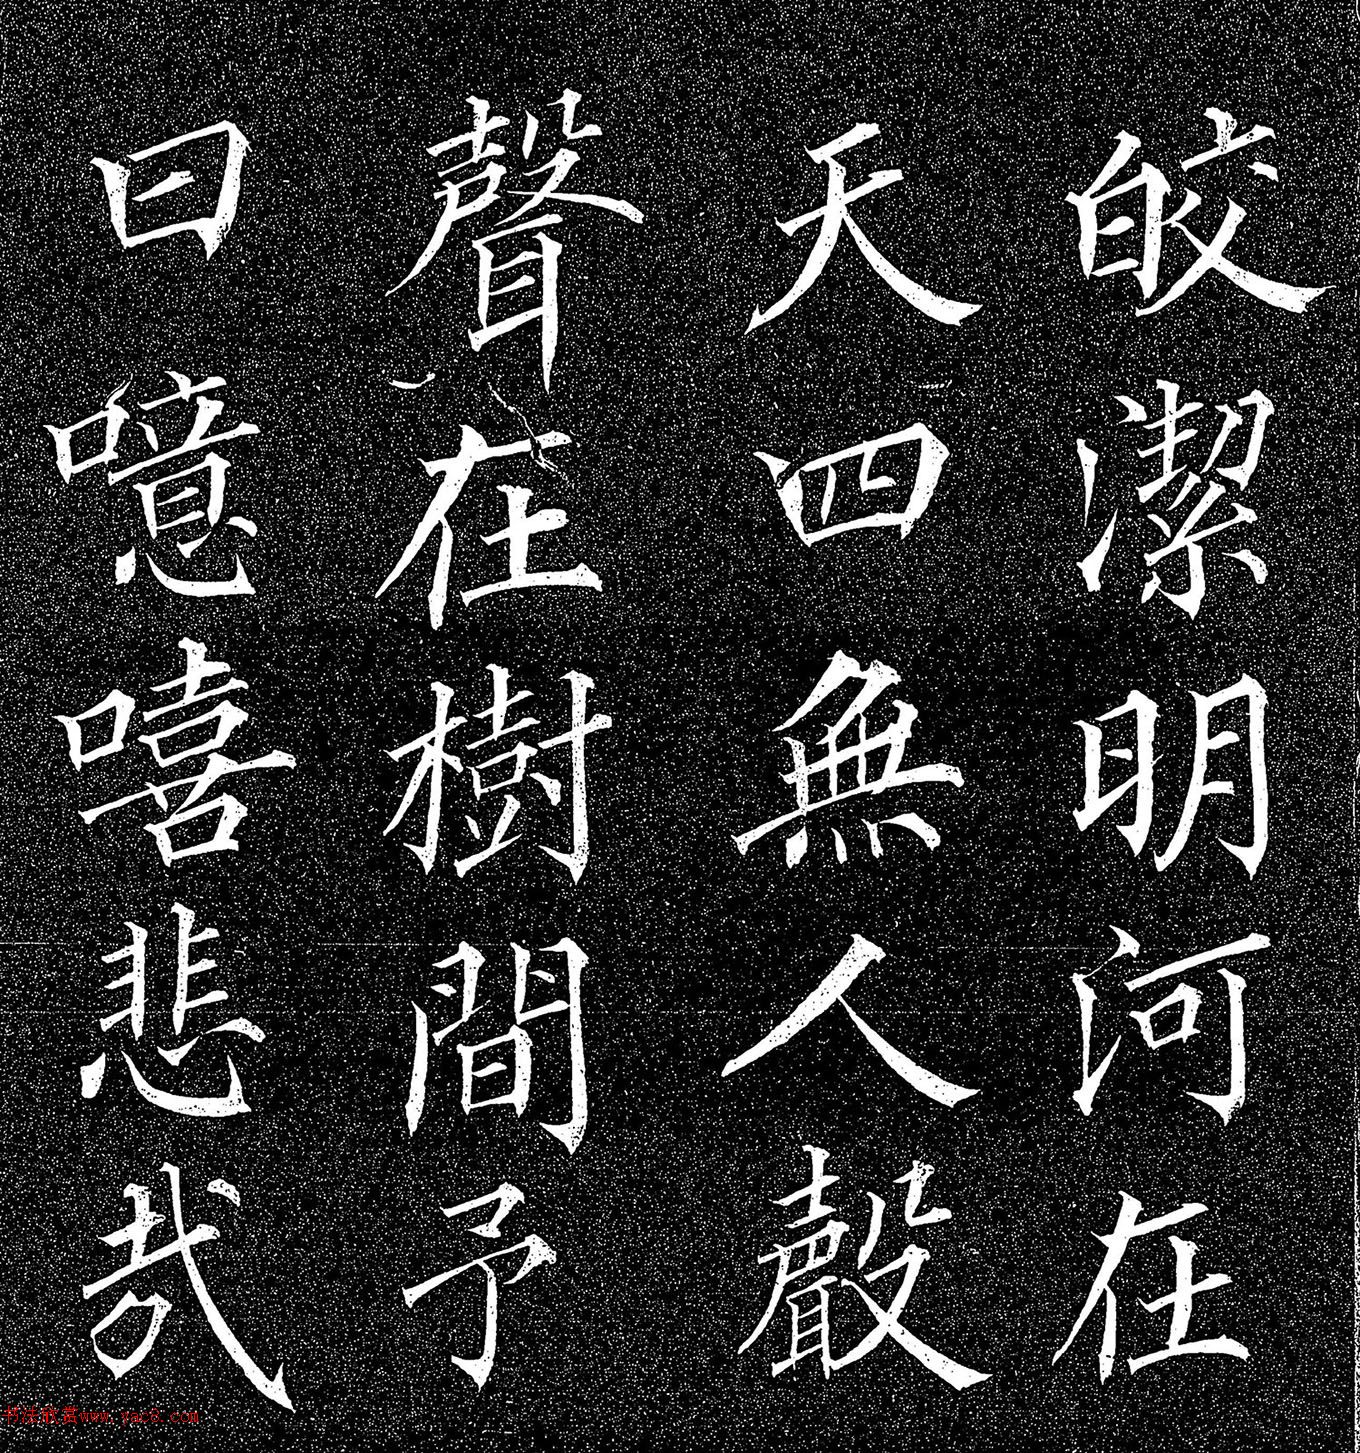 皎潔明河在
天四無人聲
聲在樹間予
曰噫嘻悲哉
书法欣赏www.yac8.com